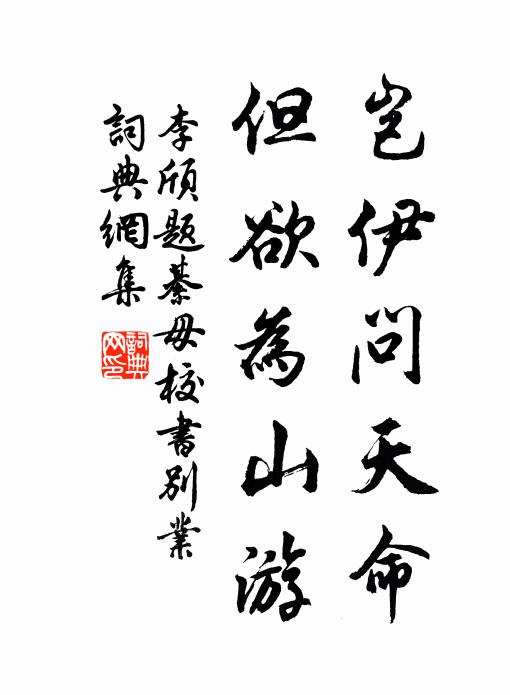 豈伊問天命
但欲為山游
李頎題綦毋校書別業
詞典網集
詞典网印